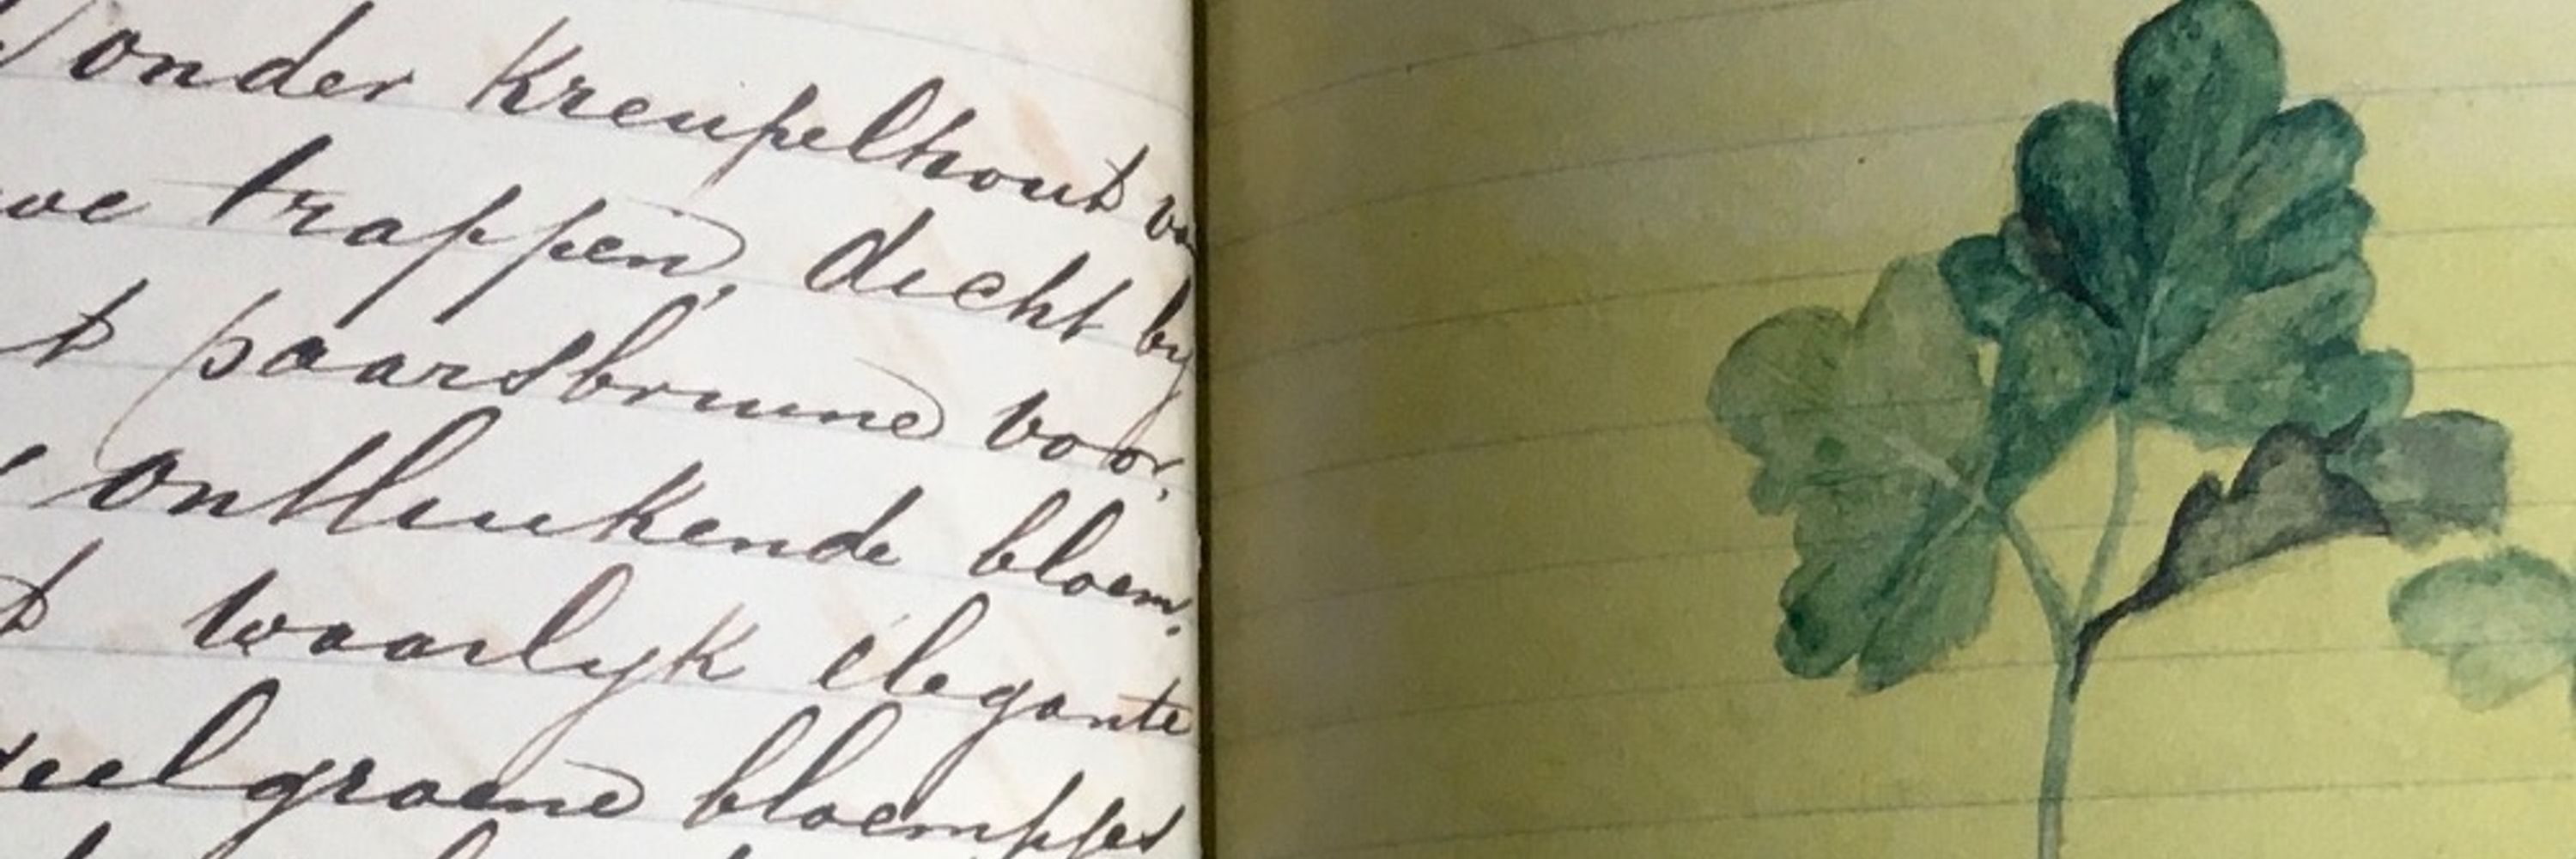 onder kreupelhout
we trappen, dicht by
paarsbruine voor,
ontluikende bloem,
waarlyk elegante
geelgroene bloempjes